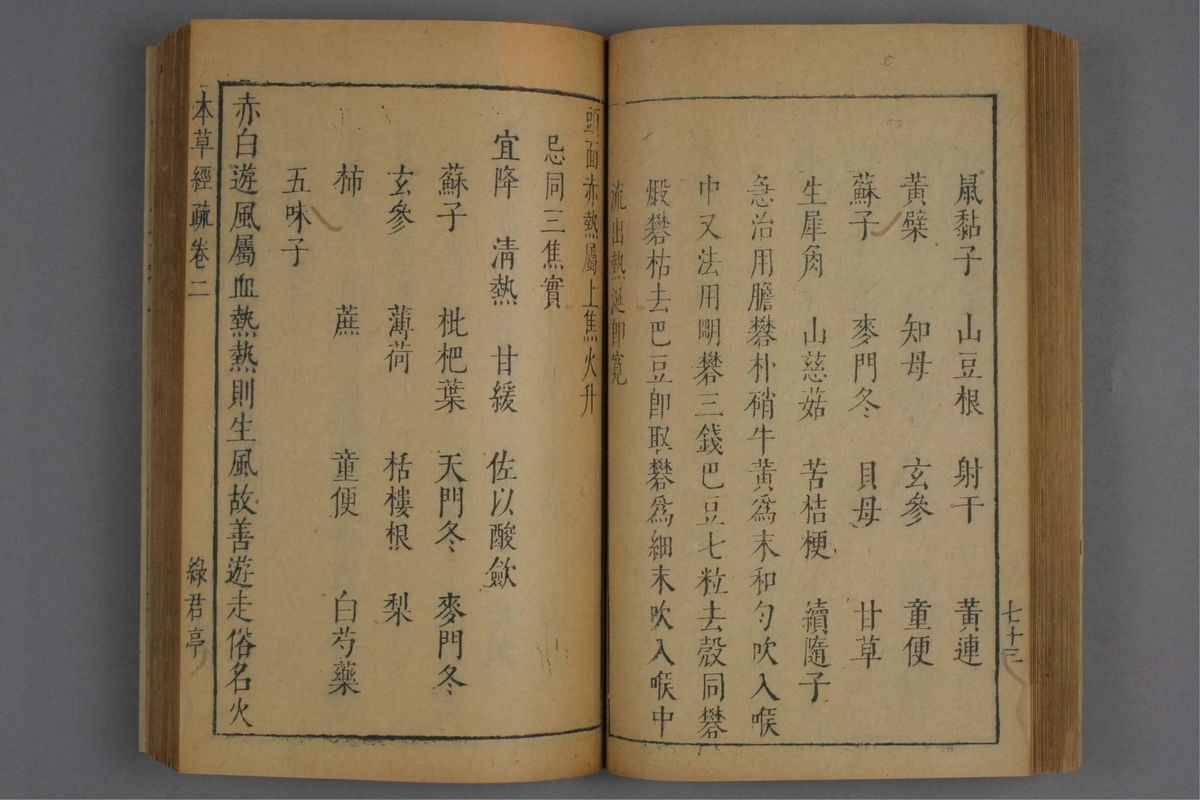 鼠黏子 山豆根 射干 黃連
黃檗 知母 玄參 童便
蘇子 麥門冬 貝母 甘草
生犀角 山慈菇 苦桔梗 續隨子
急治用膽礬朴硝牛黃為末和勻吹入喉
中又法用明礬三錢巴豆七粒去殼同礬
煅礬枯去巴豆卽取礬為細末吹入喉中
流出熱涎卽寬
七十三
頭面赤熱屬上焦火升
忌同三焦實
宜降 淸熱 甘緩 佐以酸歛
蘇子 枇杷葉 天門冬 麥門冬
玄參 薄荷 栝樓根 梨
柿 蔗 童便 白芍藥
五味子
赤白遊風屬血熱熱則生風故善遊走俗名火
本草經疏卷二 綠君亭